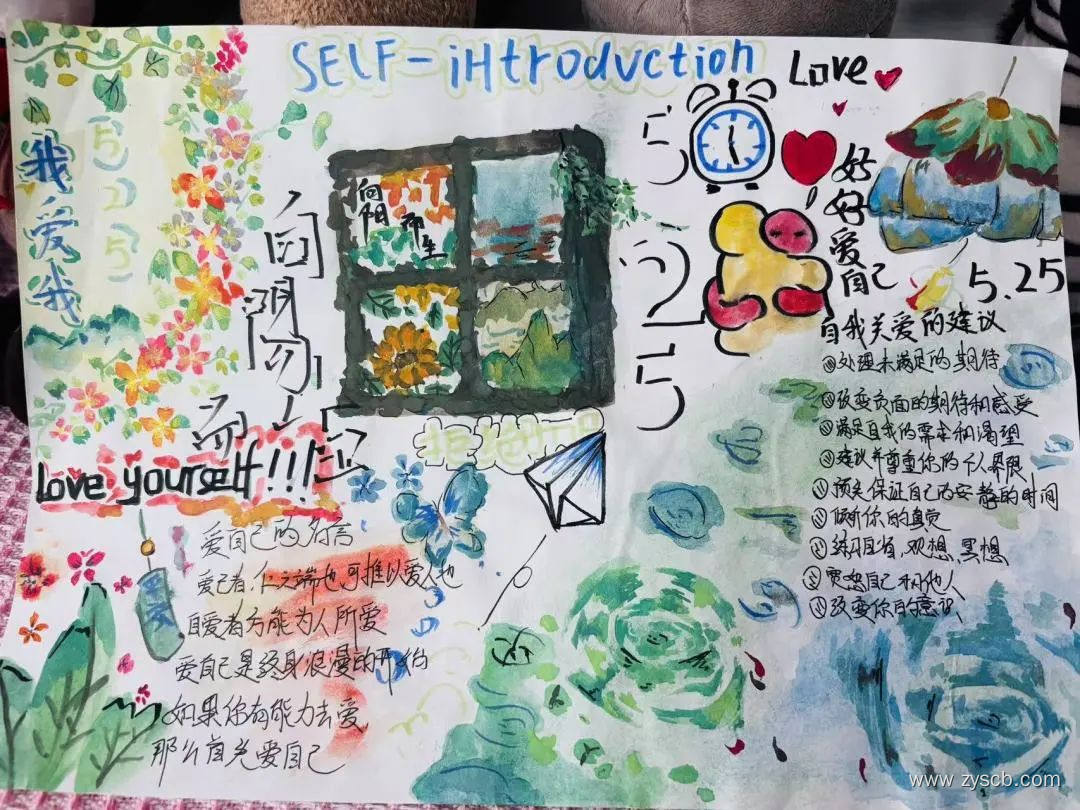 SELF-iHtroduction
Love
525
我爱我
525
好好爱自己
5.25
向阳而生
向阳而生
Love yourself!!!
拒绝
自我关爱的建议
处理未满足的期待
改变页面的期待和感受
满足自我的需求和渴望
建议并尊重你的个人界限
预先保证自己的安静的时间
倾听你的直觉
练习自省,观想,冥想
宽恕自己和他人
改变你的意识
爱自己的名言
爱己者,仁之端也,可推以爱人也
自爱者方能为人所爱
爱自己是终身浪漫的开始
如果你有能力去爱
那么首先爱自己
www.zyscb.com